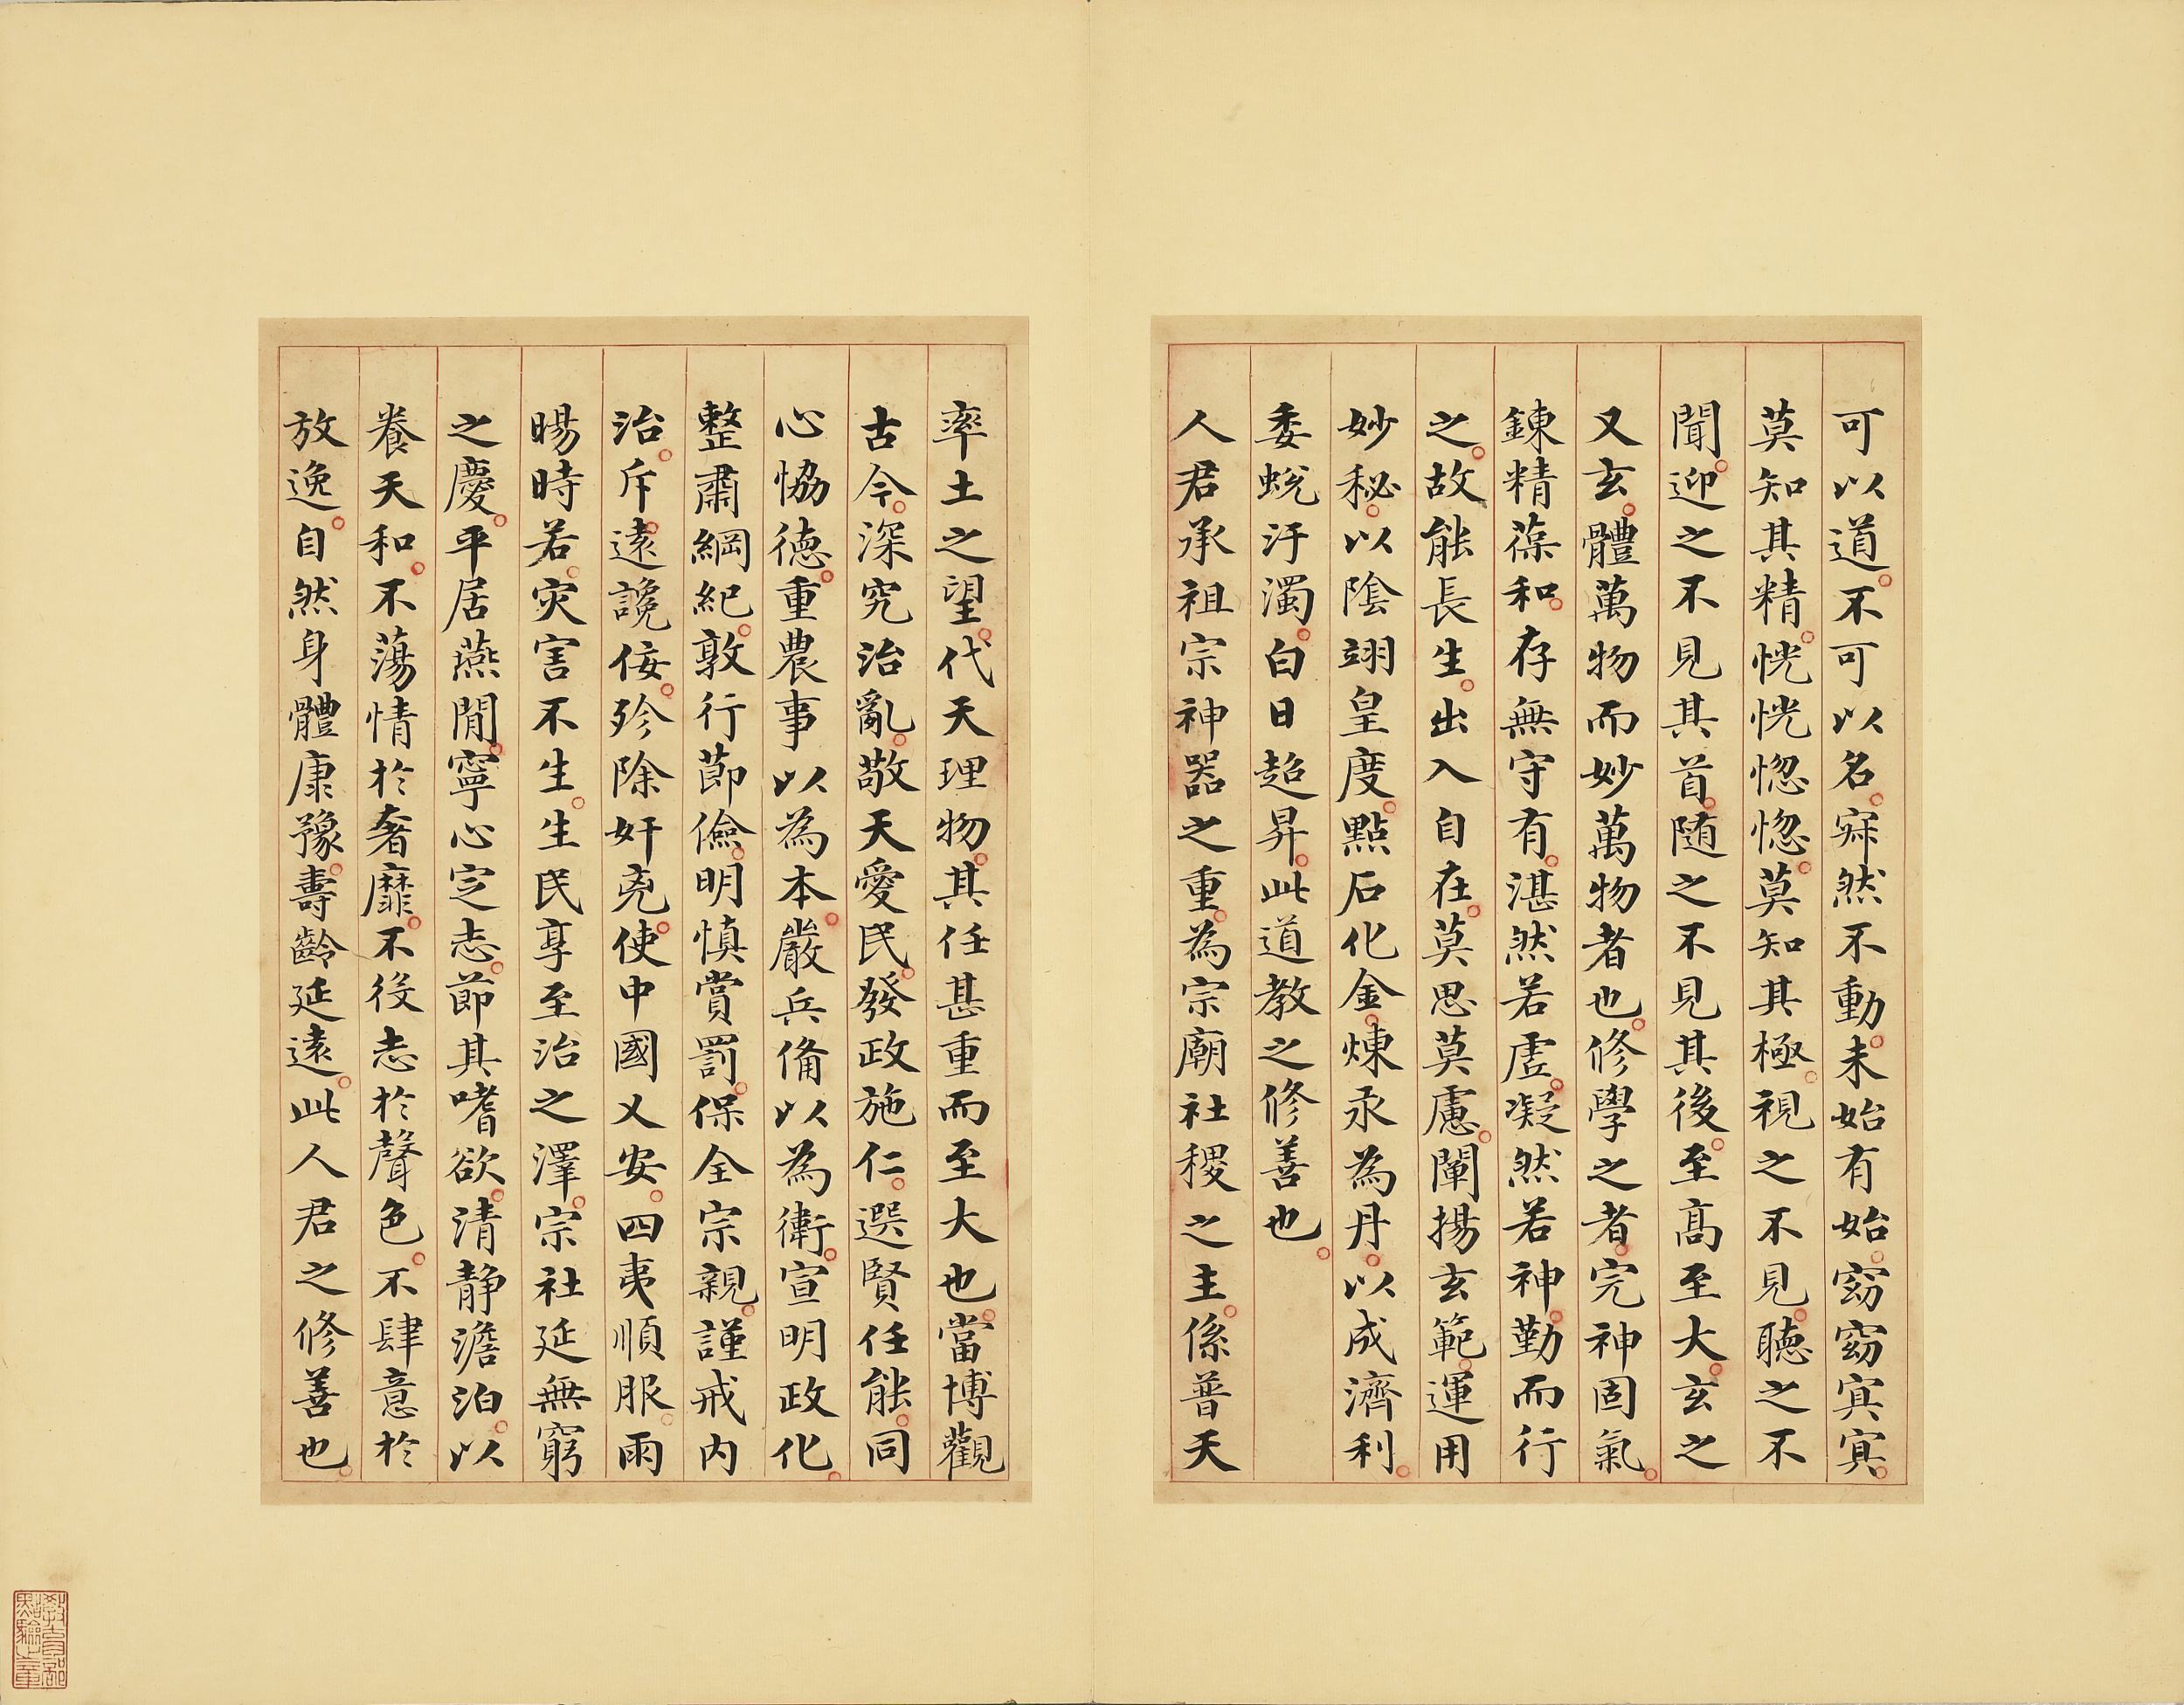 可以道不可以名寂然不動未始有始窈窈冥冥
莫知其精恍恍惚惚莫知其極視之不見聽之不
聞迎之不見其首随之不見其後至高至大玄之
又玄體萬物而妙萬物者也修學之者完神固氣
鍊精葆和存無守有湛然若虛凝然若神勤而行
之故能長生出入自在莫思莫慮闡揚玄範運用
妙秘以陰翊皇度點石化金煉汞為丹以成濟利
委蛻汙濁白日超昇此道教之修善也
人君承祖宗神器之重為宗廟社稷之主係普天
率土之望代天理物其任甚重而至大也當博觀
古今深究治亂敬天愛民發政施仁選賢任能同
心恊德重農事以為本嚴兵備以為衛宣明政化
整肅綱紀敦行節儉明慎賞罰保全宗親謹戒内
治斥遠讒佞殄除奸兇使中國乂安四夷順服雨
暘時若灾害不生生民享至治之澤宗社延無窮
之慶平居燕閒寧心定志節其嗜欲清静澹泊以
養天和不蕩情於奢靡不役志於聲色不肆意於
放逸自然身體康豫壽齡延遠此人君之修善也
教育部
點驗之章